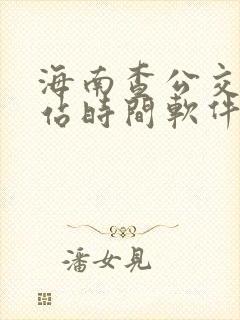 海南查公交
估時間軟件
潘女見